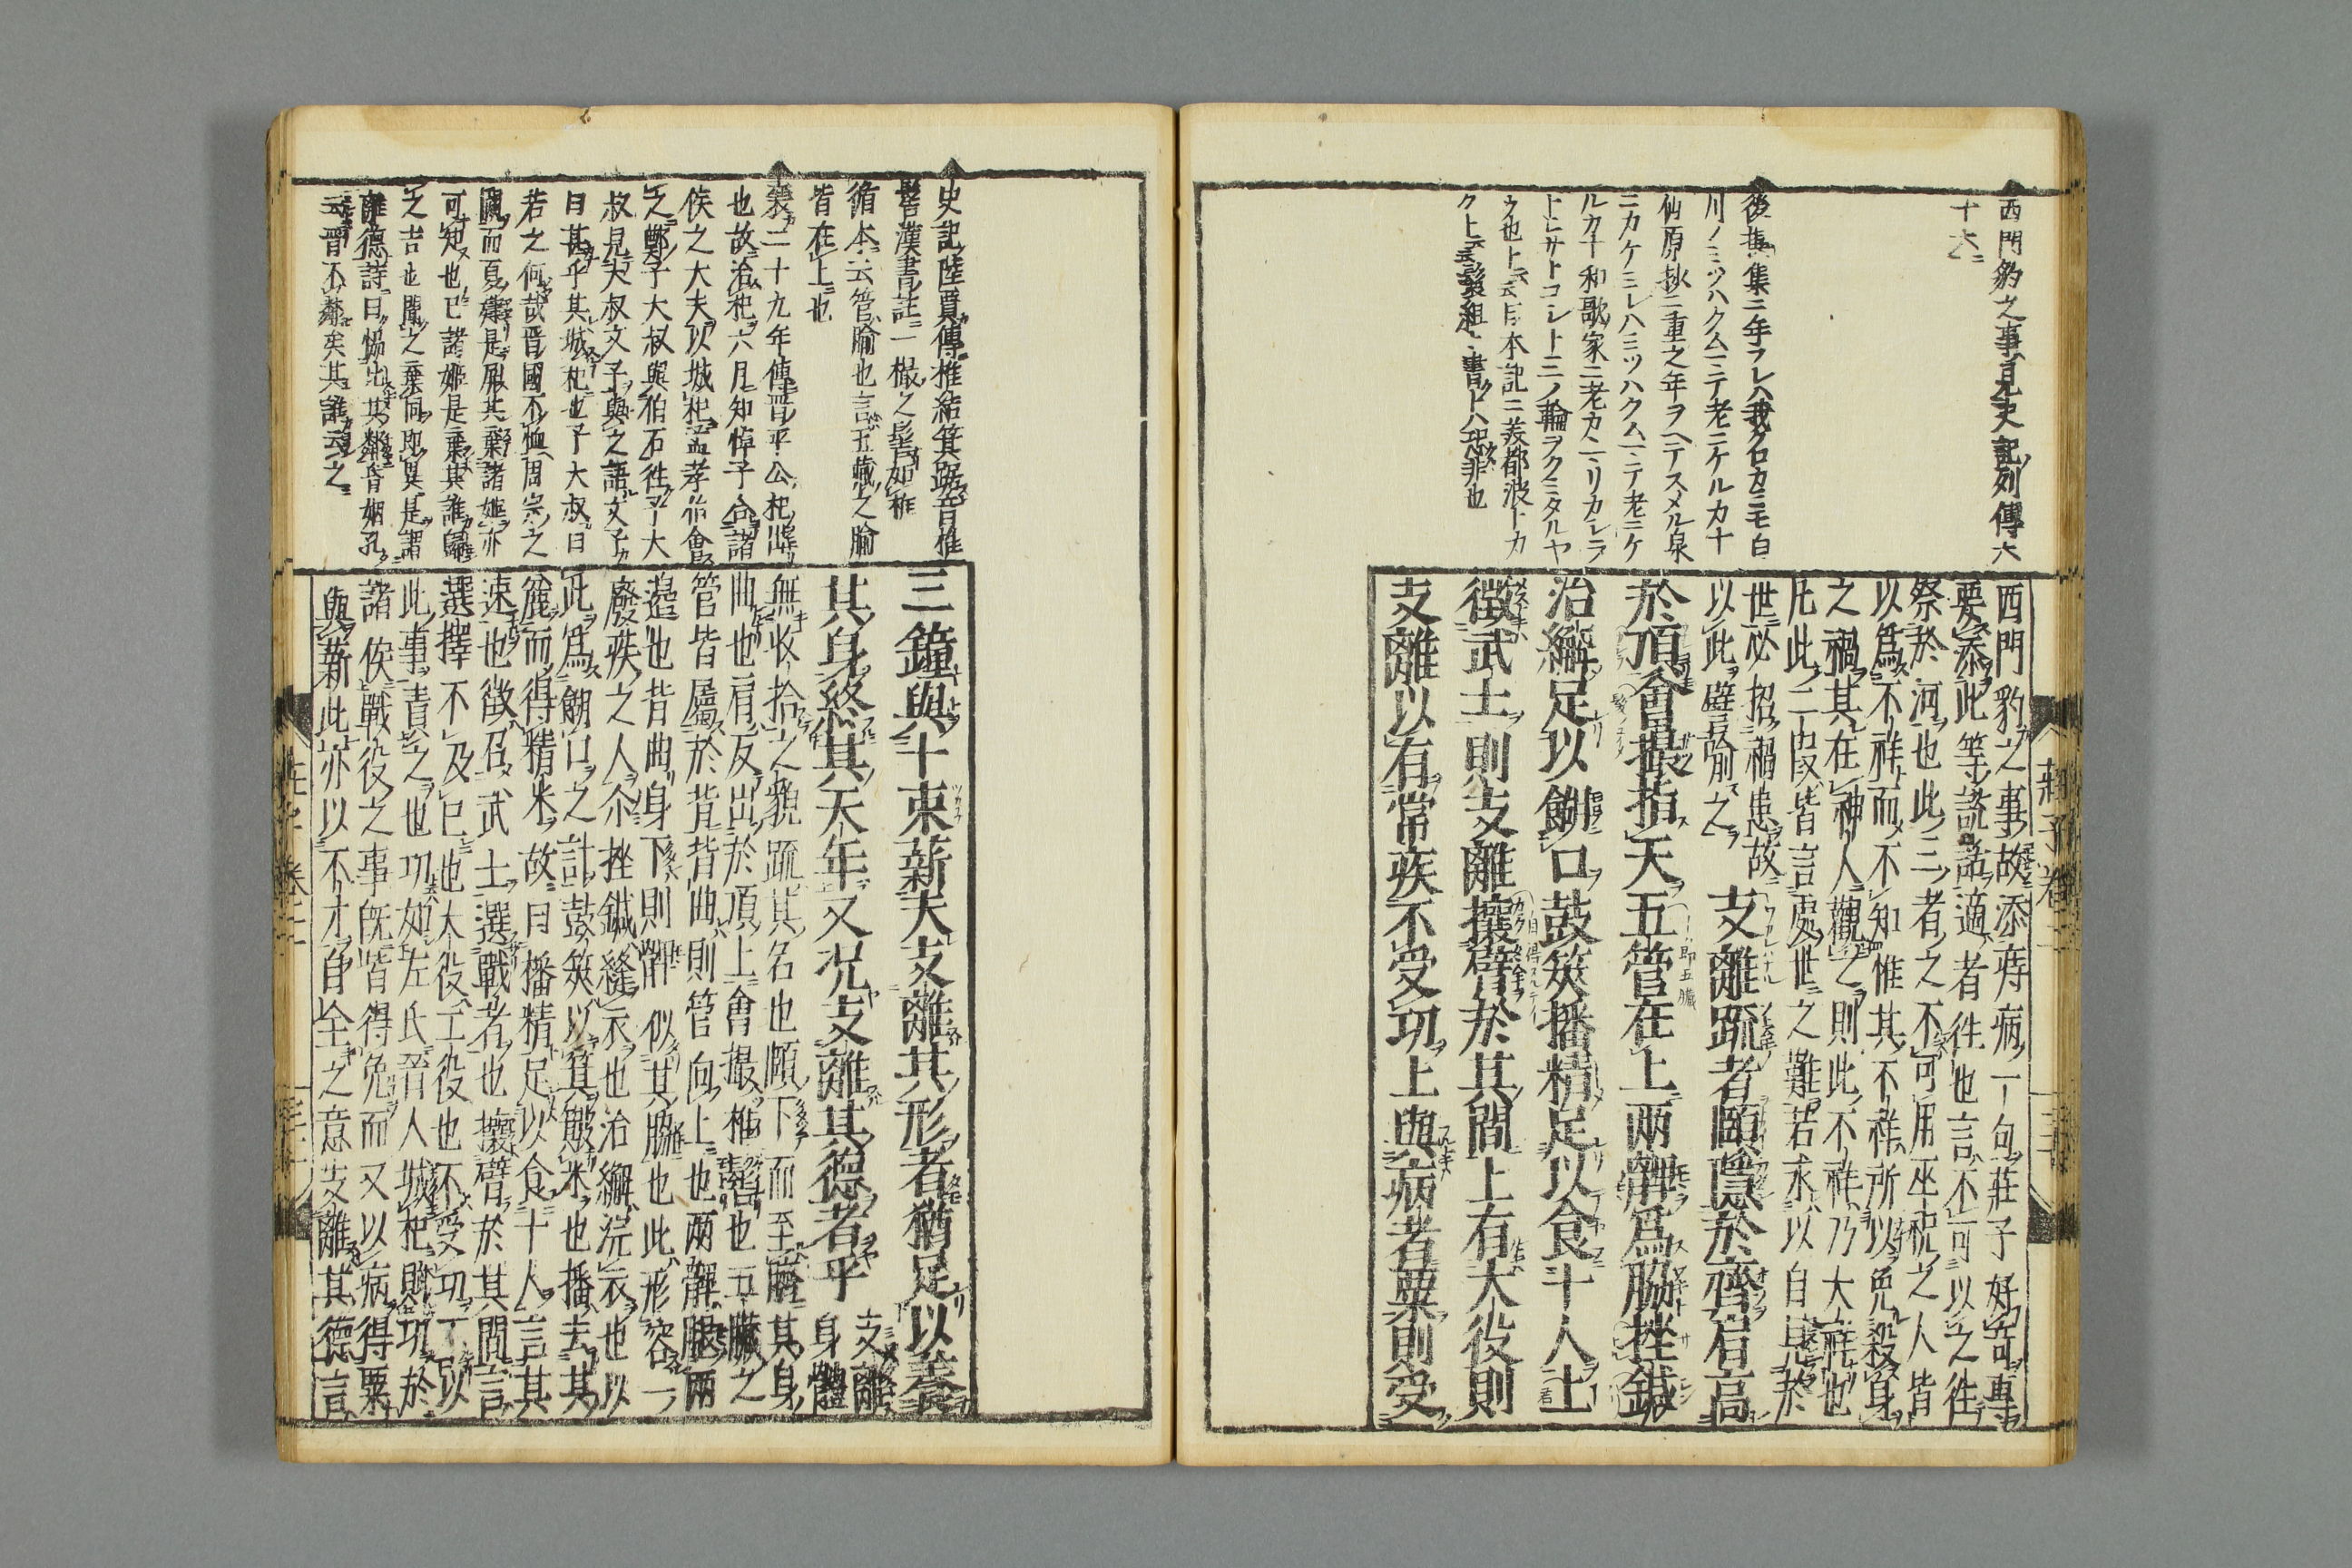 西門豹之事見史記列傳六
十六
後撰集ニ年フレハ我クロカミモ白
川ノミツハクム一ニテ老ニケルカナ
仙原抄ニ重之年ヲヘテスメル泉
ニカケミレハミツハクム一ニテ老ニケ
ルカナ和歌家ニ老カヽリカレラ
ク也ト云云日本記ニ美都波トカ
クト云云
西門豹之事故添痔病一句莊子好奇專
要添此等說話適者往也言不可以之往
祭於河也此三者之不可用巫祝之人皆
以爲不祥而不知惟其不祥所以免殺身
之禍其在神人觀之則此不祥乃大祥也
凡此二段皆言處世之難若求以自見於
世必招禍患故
以此譬喻之
支離疏者頤隱於齊肩高
於頂會撮指天五管在上兩髀爲脇挫鍼
治繲足以餬口鼓筴播精足以食十人上
徵武士則支離攘臂於其間上有大役則
支離以有常疾不受功上與病者粟則受
莊子卷二
史記陸賈傳椎結箕踞音椎
髻漢書註一撮之髻如椎
循本云管腧也言五藏之腧
皆在上也
襄二十九年傳晋平公杞出
也故治杞六月知悼子合諸
侯之大夫以城杞孟孝伯會
之鄭子大叔與伯石往子大
叔見大叔文子與之語文子
曰甚乎其城杞也子大叔曰
若之何哉晋國不恤周宗之
闕而夏肄是屏其棄諸姬亦
可知也已諸姬是棄其誰歸
之吉也聞之棄同即異是謂
離德詩曰協比其鄰昏姻孔
云晋不鄰矣其誰云之
三鐘與十束薪夫支離其形者猶足以養
其身終其天年又况支離其德者乎
支離
身體
無收拾之貌疏其名也頤下而至臍其身
曲也肩反出於頂上會撮椎髻也五臟之
管皆屬於背背曲則管向上也兩髀腿兩
邊也背曲身下則髀似其脇也此形容一
廢疾之人尒挫鍼縫衣也治繲浣衣也以
此爲餬口之計鼓筴以箕簸米也播去其
麄而得精米故曰播精足以食十人言其
速也徵召武士選戰者也攘臂於其間言
選擇不及已也大役工役也不受功不以
此事責之也功如左氏晋人城杞賦功於
諸侯戰役之事既皆得免而又以病得粟
與薪此亦以不才自全之意支離其德言
莊子卷二